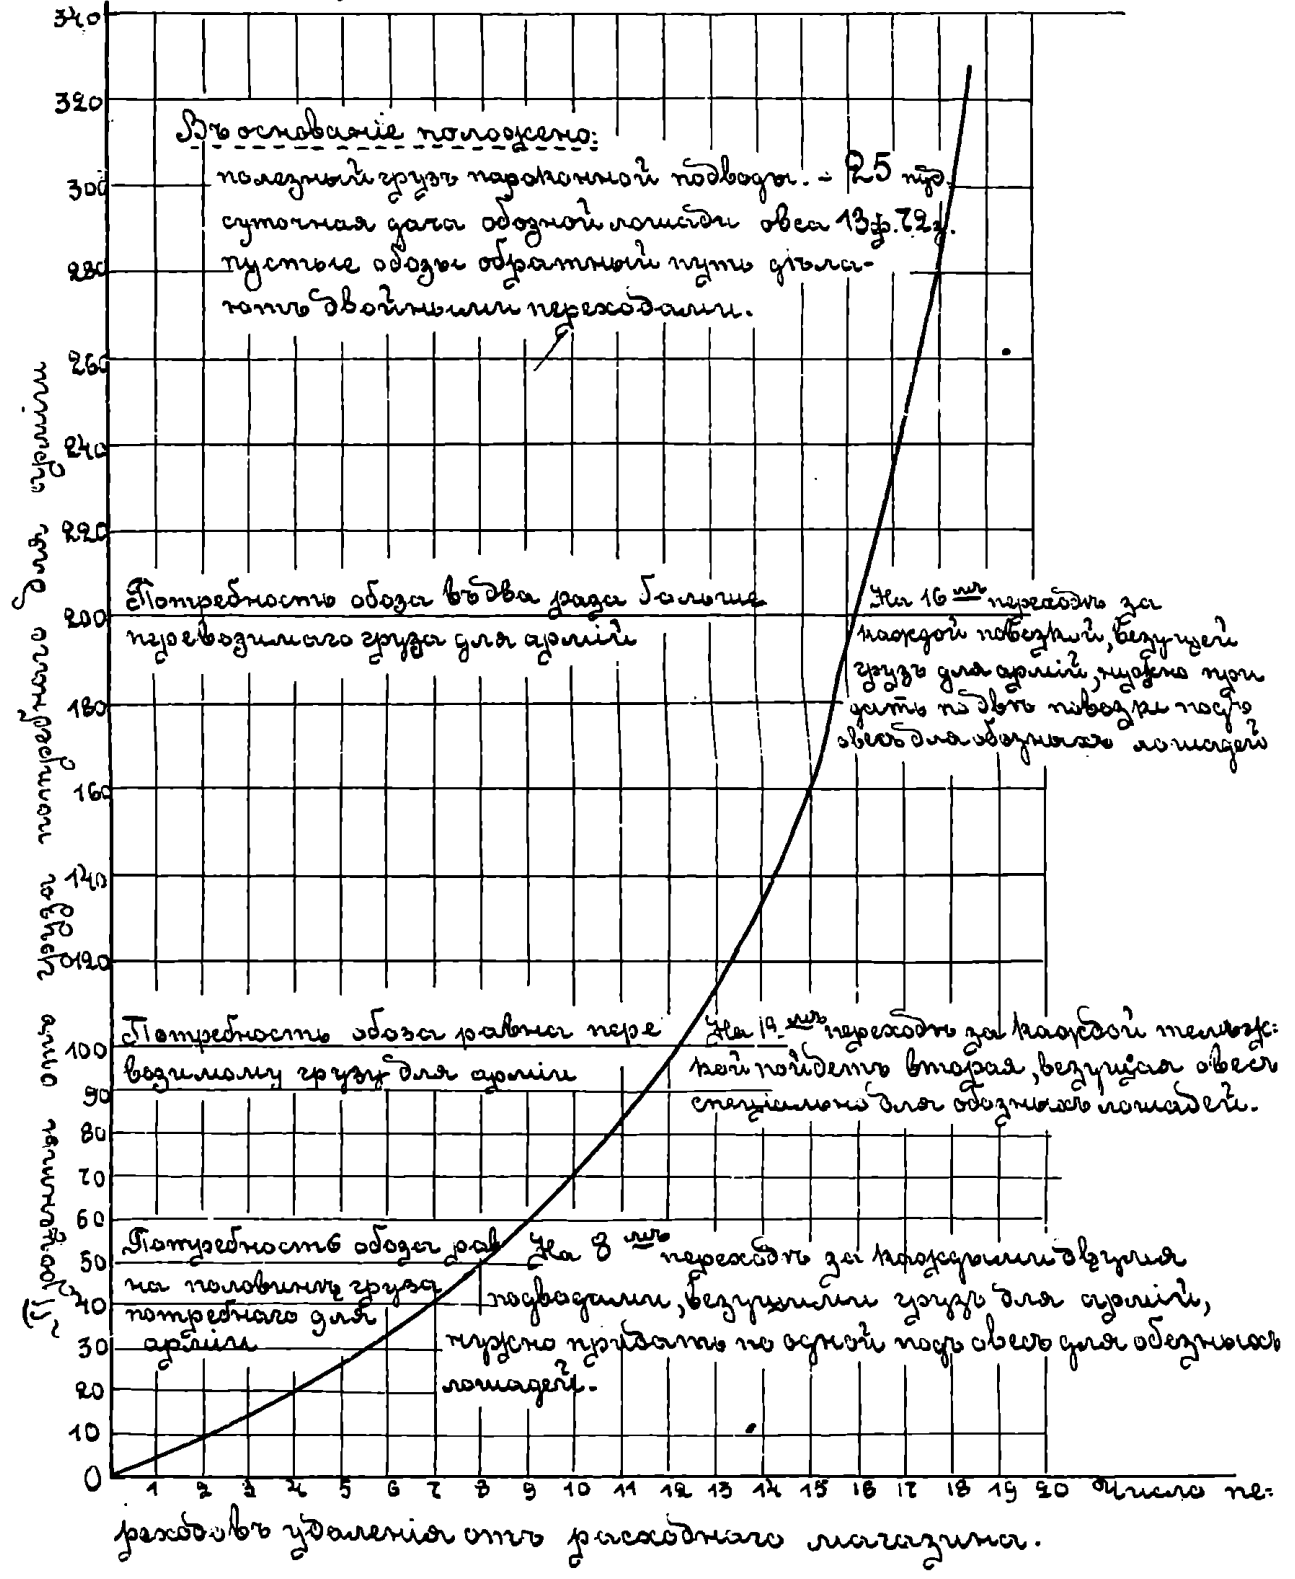 340
320
300
280
260
240
220
200
180
160
140
120
100
90
80
70
60
50
40
30
20
10
0
Проценты отъ груза потребнаго для арміи
Въ основаніе положено:
полезный грузъ пароконной подводы. - 25 пуд.
суточная дача обозной лошади овса 13ф. 72з.
пустые обозы обратный путь дѣла-
ютъ двойными переходами.
Потребность обоза въ два раза больше
перевозимаго груза для арміи
На 16мъ переходѣ за
каждой повозкой, везущей
грузъ для арміи, нужно при
дать по двѣ повозки подъ
овесъ для обозныхъ лошадей
Потребность обоза равна пере
возимому грузу для арміи
На 12мъ переходѣ за каждой телѣж-
кой пойдетъ вторая, везущая овесъ
спеціально для обозныхъ лошадей.
Потребность обоза рав
на половинѣ груза
потребнаго для
арміи
На 8мъ переходѣ за каждыми двумя
подводами, везущими грузъ для арміи,
нужно придать по одной подъ овесъ для обозныхъ
лошадей.
1 2 3 4 5 6 7 8 9 10 11 12 13 14 15 16 17 18 19 20 Число пе=
реходовъ удаленія отъ расходнаго магазина.